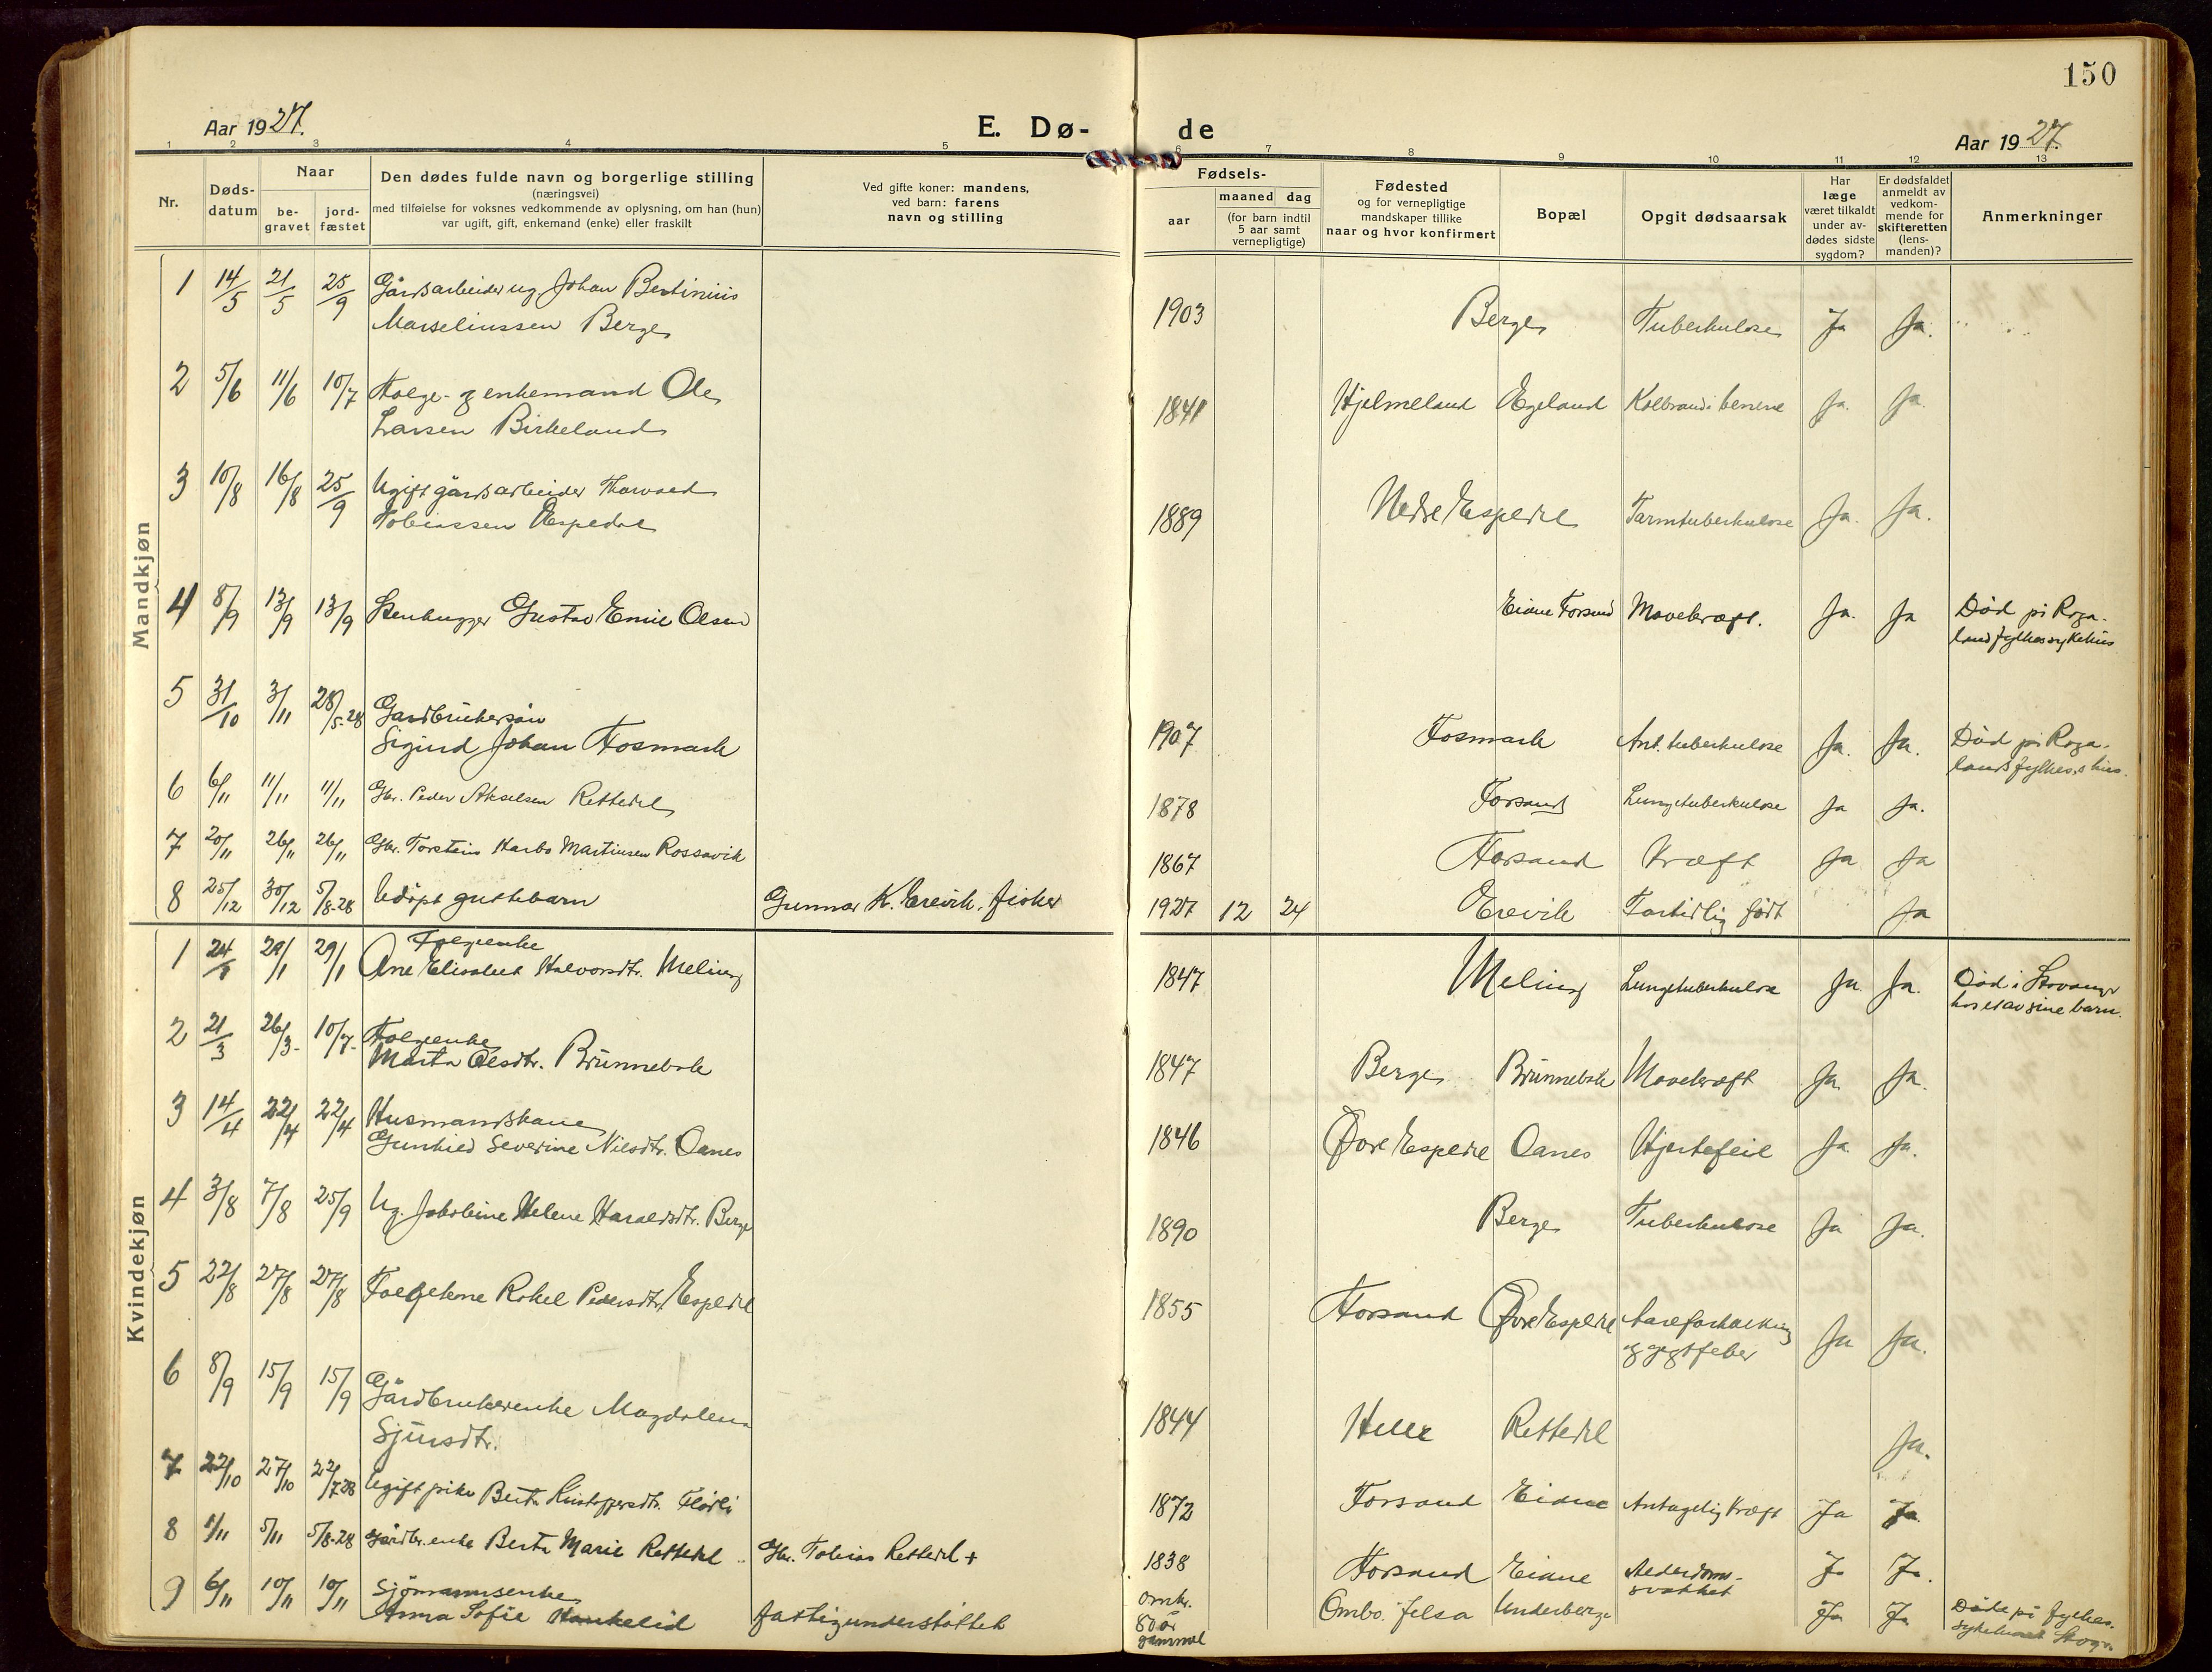 150
Aar 1927.
E. Dø-
de
Aar 1927.
1 2 3 4 5 6 7 8 9 10 11 12 13
Nr.
Døds-
datum
Naar
be-
gravet
jord-
fæstet
Den dødes fulde navn og borgerlige stilling
(næringsvei)
med tilføielse for voksnes vedkommende av oplysning, om han (hun)
var ugift, gift, enkemand (enke) eller fraskilt
Ved gifte koner: mandens,
ved barn: farens
navn og stilling
Fødsels-
aar
maaned dag
(for barn indtil
5 aar samt
vernepligtige)
Fødested
og for vernepligtige
mandskaper tillike
naar og hvor konfirmert
Bopæl
Opgit dødsaarsak
Har
læge
været tilkaldt
under av-
dødes sidste
sygdom?
Er dødsfaldet
anmeldt av
vedkom-
mende for
skifteretten
(lens-
manden)?
Anmerkninger
Mandkjøn
1 14/5 21/5 25/9 Gårdsarbeider ug Johan Bertinius
Marseliussen Berge
1903 Berge Tuberkulose Ja Ja.
2 5/6 11/6 10/7 Folge- g enkemand Ole
Larsen Birkeland
1841 Hjelmeland Egeland Kolbrand i benene Ja. Ja.
3 10/8 16/8 25/9 Ugift gårdsarbeider Thorvald
Tobiassen Espedal
1889 Nedre Espedal Tarmtuberkulose Ja. Ja.
4 8/9 13/9 13/9 Stenhugger Gustav Emil Olsen
Eiane Forsand Mavekræft. Ja. Ja Død på Roga-
land fylkessykehus
5 31/10 3/11 28/5-28 Gardbrukersøn
Sigurd Johan Fosmark
1907 Fosmark Ant. tuberkulose Ja. Ja. Død på Roga-
lands fylkes.s hus.
6 6/11 11/11 11/11 Gbr. Peder Akselsen Rettedal
1878 Forsand Lungetuberkulose Ja Ja.
7 20/11 26/11 26/11 Gbr. Torstein Harbo Martinsen Rossavik
1867 Forsand Kræft Ja Ja
8 25/12 30/12 5/8-28 Udøpt guttebarn Gunnar K. Erevik, fisker
1927 12 24 Erevik Fortidlig født Ja
Kvindekjøn
1 24/1 29/1 29/1 Folgeenke
Ane Elisabet Halvorsdtr. Meling
1847 Meling Lungetuberkulose Ja Ja. Død i Stavanger
hos et av sine barn.
2 21/3 26/3- 10/7- Folgeenke
Marta Olsdtr. Brunnebak
1847 Berge Brunnebak Mavekræft Ja. Ja.
3 14/4 22/4 22/4 Husmandskane
Gunhild Severine Nilsdtr. Oanes
1846 Øvre Espedal Oanes Hjertefeil Ja Ja.
4 3/8 7/8 25/9 Ug. Jakobine Helene Haraldsdtr. Berge
1890 Berge Tuberkulose Ja Ja.
5 22/8 27/8 27/8 Folgekone Rakel Pedersdtr. Espedal
1855 Forsand Øvre Espedal Aareforkalkning
og gigtfeber Ja Ja.
6 8/9 15/9 15/9 Gårdbrukerenke Magdalena
Sjursdtr.
1844 Helle Rettedal Ja.
7 22/10 27/10 22/7-28 Ugift pike Berta Kristoffersdtr. Flørli
1872 Forsand Eiane Antagelig kræft Ja Ja.
8 1/11 5/11 5/8-28 Gårdbr.enke Berta Marie Rettedal Gbr. Tobias Rettedal +
1838 Forsand Eiane Alderdoms-
svakhet Ja Ja.
9 6/11 10/11 10/11 Sjømannsenke
Anna Sofie Haukelid fattigunderstøttet
Omkr.
80 år
gammal Ombo. Jelsa Underberge Ja Ja Døde på fylkes-
sykehuset